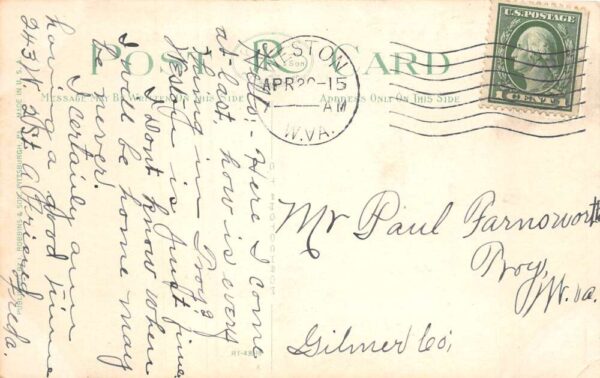 POST CARD
MESSAGE MAY BE WRITTEN ON THIS SIDE
ADDRESS ONLY ON THIS SIDE
WESTON
APR 20-15
AM
W.VA.
U.S. POSTAGE
1 CENT 1
Hello - Here I come
at last, how is every
thing in Troy?
Weston is just fine
I dont know when
I will be home may
be never.
I certainly am
having a good time
243 N. 21st A Friend
Freda.
Mr Paul Farnsworth
Troy,
W.va.
Gilmer Co;